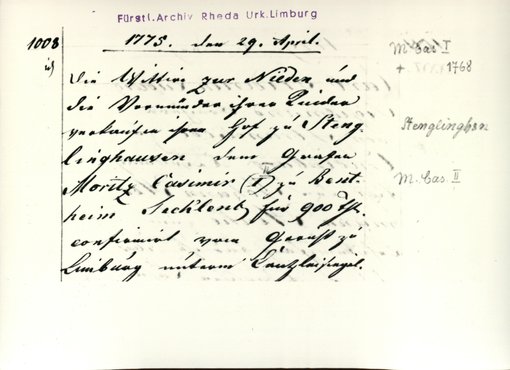 Fürstl. Archiv Rheda Urk. Limburg
1008
1775. den 29. April.
M Cas I
+ 1768
Die Wittwe zur Nieden und
die Vormünder ihrer Kinder
verkaufen ihren Hof zu Steng
linghausen dem Grafen
Moritz Casimir (I) zu Bent
heim Tecklenb. für 900 Th.
confirmirt vom Gericht zu
Limburg unterm Kanzleisiegel.
Stenglinghsn
M. Cas II